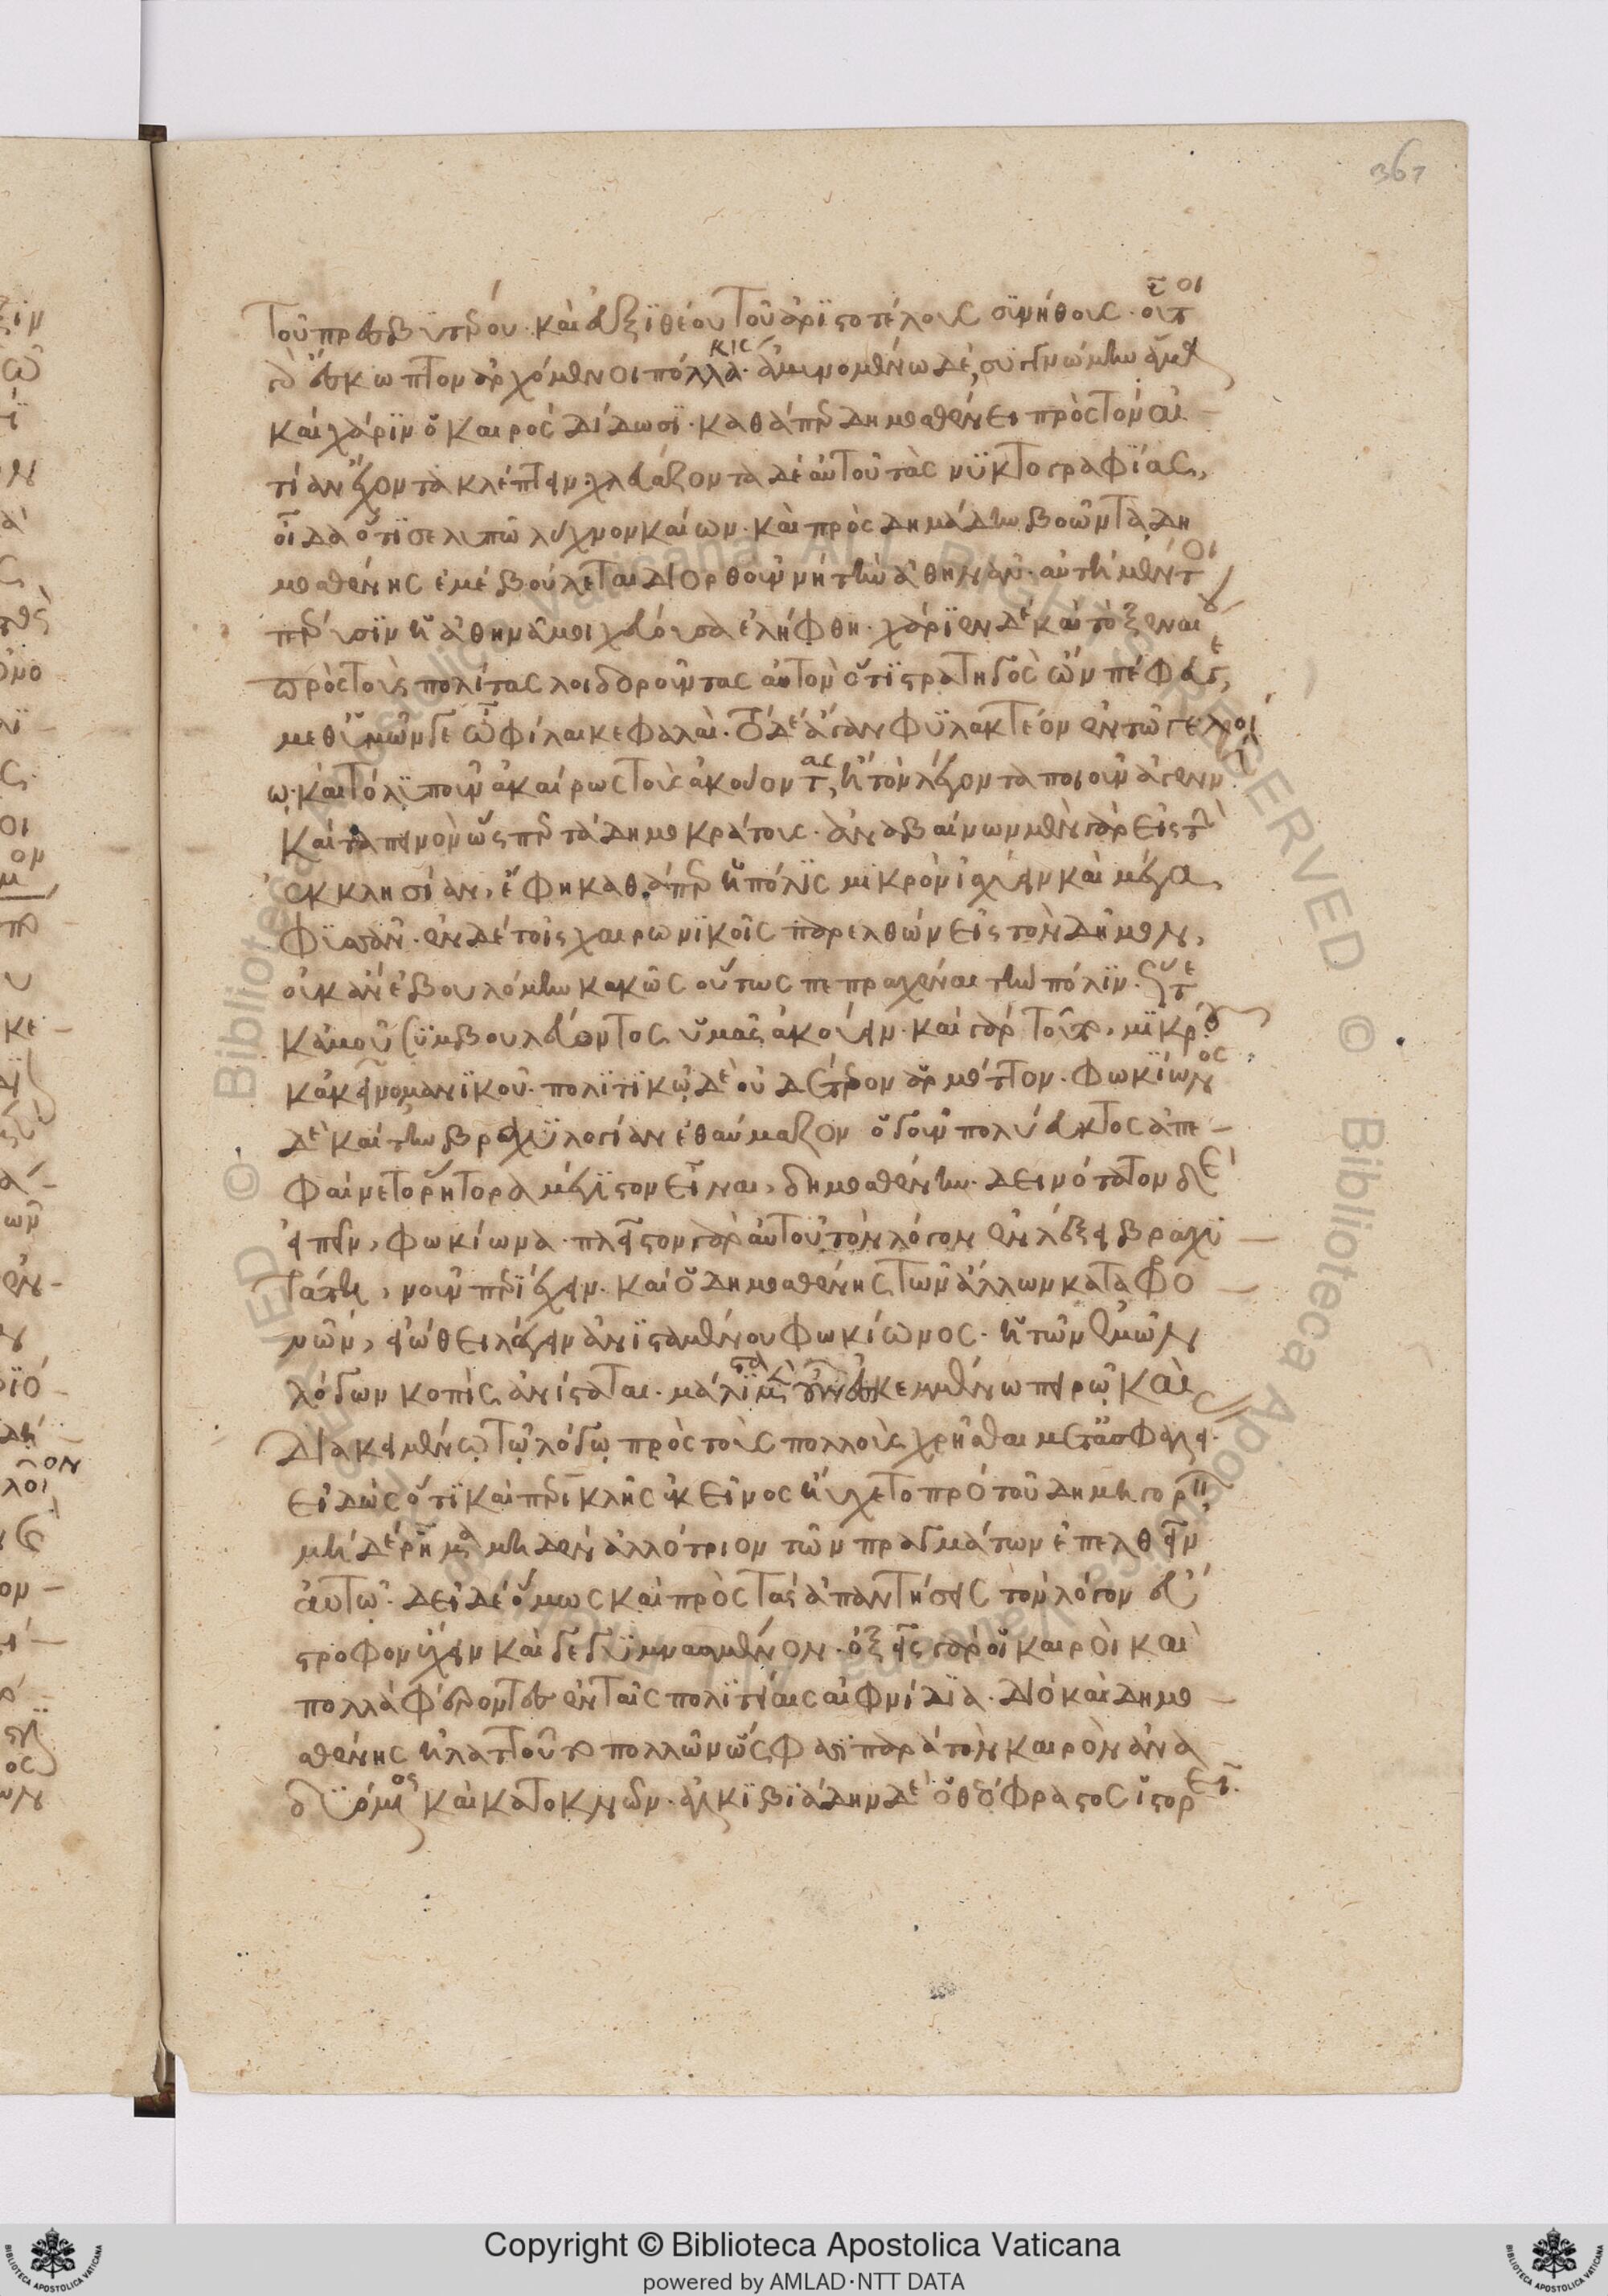 367
τοῦ πρεσβϋτέρου· καὶ δεξϊθέου τοῦ ἀρϊστοτέλους σϋνήθους· οὗτοι
γὰρ ἔσκωπτον ἀρχόμενοι πολλάκις· ἀμυνομένω δὲ, συγγνώμην ἅμα
καὶ χάρϊν ὁ καιρὸς δίδωσϊ· καθάπερ δημοσθένει πρὸς τὸν αἰ
τίαν ἔχοντα κλέπτειν· χλευάζοντα δὲ αὐτοῦ τὰς νϋκτογραφΐας,
οἶδα ὅτϊ σε λυπῶ λύχνον καίων· καὶ πρὸς δημάδην βοῶντα δη
μοσθένης ἐμὲ βούλεται διορθοῦν ἡ ὗς τὴν ἀθηνᾶν· αὐτὴ μέντοι
πέρυσϊν ἡ ἀθηνᾶ μοιχεύουσα ἐλήφθη· χαρΐεν δὲ καὶ τὸ ξεναινέτου
πρὸς τοὺς πολίτας λοιδοροῦντας αὐτὸν ὅτϊ στρατηγὸς ὢν πέφευγε,
μεθ ὑμῶν γε ὦ φίλαι κεφαλαί· τὸ δὲ ἄγαν φϋλακτέον ἐν τῶ γελοί
ῳ· καὶ τὸ λϋποῦν ἀκαίρως τοὺς ἀκούοντας, ἢ τὸν λέγοντα ποιοῦν ἀγεννῆ
καὶ ταπεινὸν ὥσπερ τὰ δημοκράτους· ἀναβαίνων μὲν γὰρ εἰς τὴν
ἐκκλησίαν, ἔφη καθάπερ ἡ πόλϊς μικρὸν ἰσχύειν καὶ μέγα
φϋσᾶν· ἐν δὲ τοῖς χαιρωνϊκοῖς παρελθὼν εἰς τὸν δῆμον,
οὐκ ἂν ἐβουλόμην κακῶς οὕτως πεπραχέναι τὴν πόλϊν· ὥστε
κἀμοῦ σϋμβουλεύοντος ὑμᾶς ἀκούειν· καὶ γὰρ τοῦτο, μϊκροῦ
κἀκεῖνο μανϊκοῦ· πολϊτϊκῷ δὲ οὐδέτερον ἁρμόττον· φωκΐωνος
δὲ καὶ τὴν βραχϋλογίαν ἐθαύμαζον ὁ γοῦν πολύευκτος ἀπε
φαίνετο ῥήτορα μέγϊστον εἶναι, δημοσθένην· δεινότατον δὲ
εἰπεῖν, φωκίωνα· πλεῖστον γὰρ αὐτοῦ τὸν λόγον ἐν λέξει βραχυ
τάτη, νοῦν περϊέχειν· καὶ ὁ δημοσθένης τῶν ἄλλων καταφρο
νῶν, εἰώθει λέγειν ἀνϊσταμένου φωκίωνος· ἡ τῶν ἐμῶν
λόγων κοπὶς ἀνίσταται· μάλϊστα μὲν οὖν ἐσκεμμένω πειρῶ καὶ
διακειμένῳ τῷ λόγῳ πρὸς τοὺς πολλοὺς χρῆσθαι μετ ἀσφαλείας·
εἰδὼς ὅτϊ καὶ περϊκλῆς ἐκεῖνος ηὔχετο πρὸ τοῦ δημηγορεῖν
μὴ δὲ ῥῆμα μηδὲν ἀλλότριον τῶν πραγμάτων ἐπελθεῖν
αὐτῶ· δεῖ δὲ ὅμως καὶ πρὸς τὰς ἀπαντήσεις τὸν λόγον εὔ
στροφον ἔχειν καὶ γεγϋμνασμένον· ὀξεῖς γὰρ οἱ καιροὶ καὶ
πολλὰ φέροντες ἐν ταῖς πολϊτείαις αἰφνίδϊα· διὸ καὶ δημο
σθένης ἠλαττοῦτο πολλῶν ὥς φασϊ παρὰ τὸν καιρὸν ἀνα
δϋόμενος καὶ κατοκνῶν· ἀλκϊβϊάδην δὲ ὁ θεόφραστος ἱστορεῖ·
Copyright © Biblioteca Apostolica Vaticana
powered by AMLAD·NTT DATA